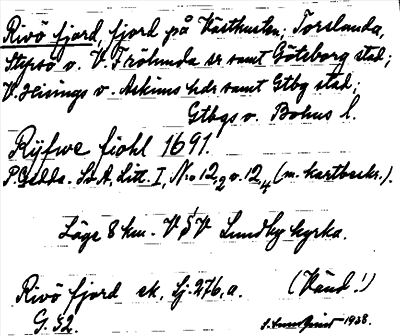 Rivö fjord, fjord på Västkusten, Torslanda,
Styrsö o. V. Frölunda sn samt Göteborg stad;
V. Hisings o. Askims hdr samt Gtbg stad;
Gtbgs o. Bohus l.
Rÿfwe fiohl 1691.
P. Gedda. Sv. A. Litt. I, No 12,2 o. 12,4 (m. kartbeskr.).
Läge 8 km. V t S V Lundby kyrka.
Rivö fjord ek. bj. 276, a. (Vänd!)
G. 52. 1938.